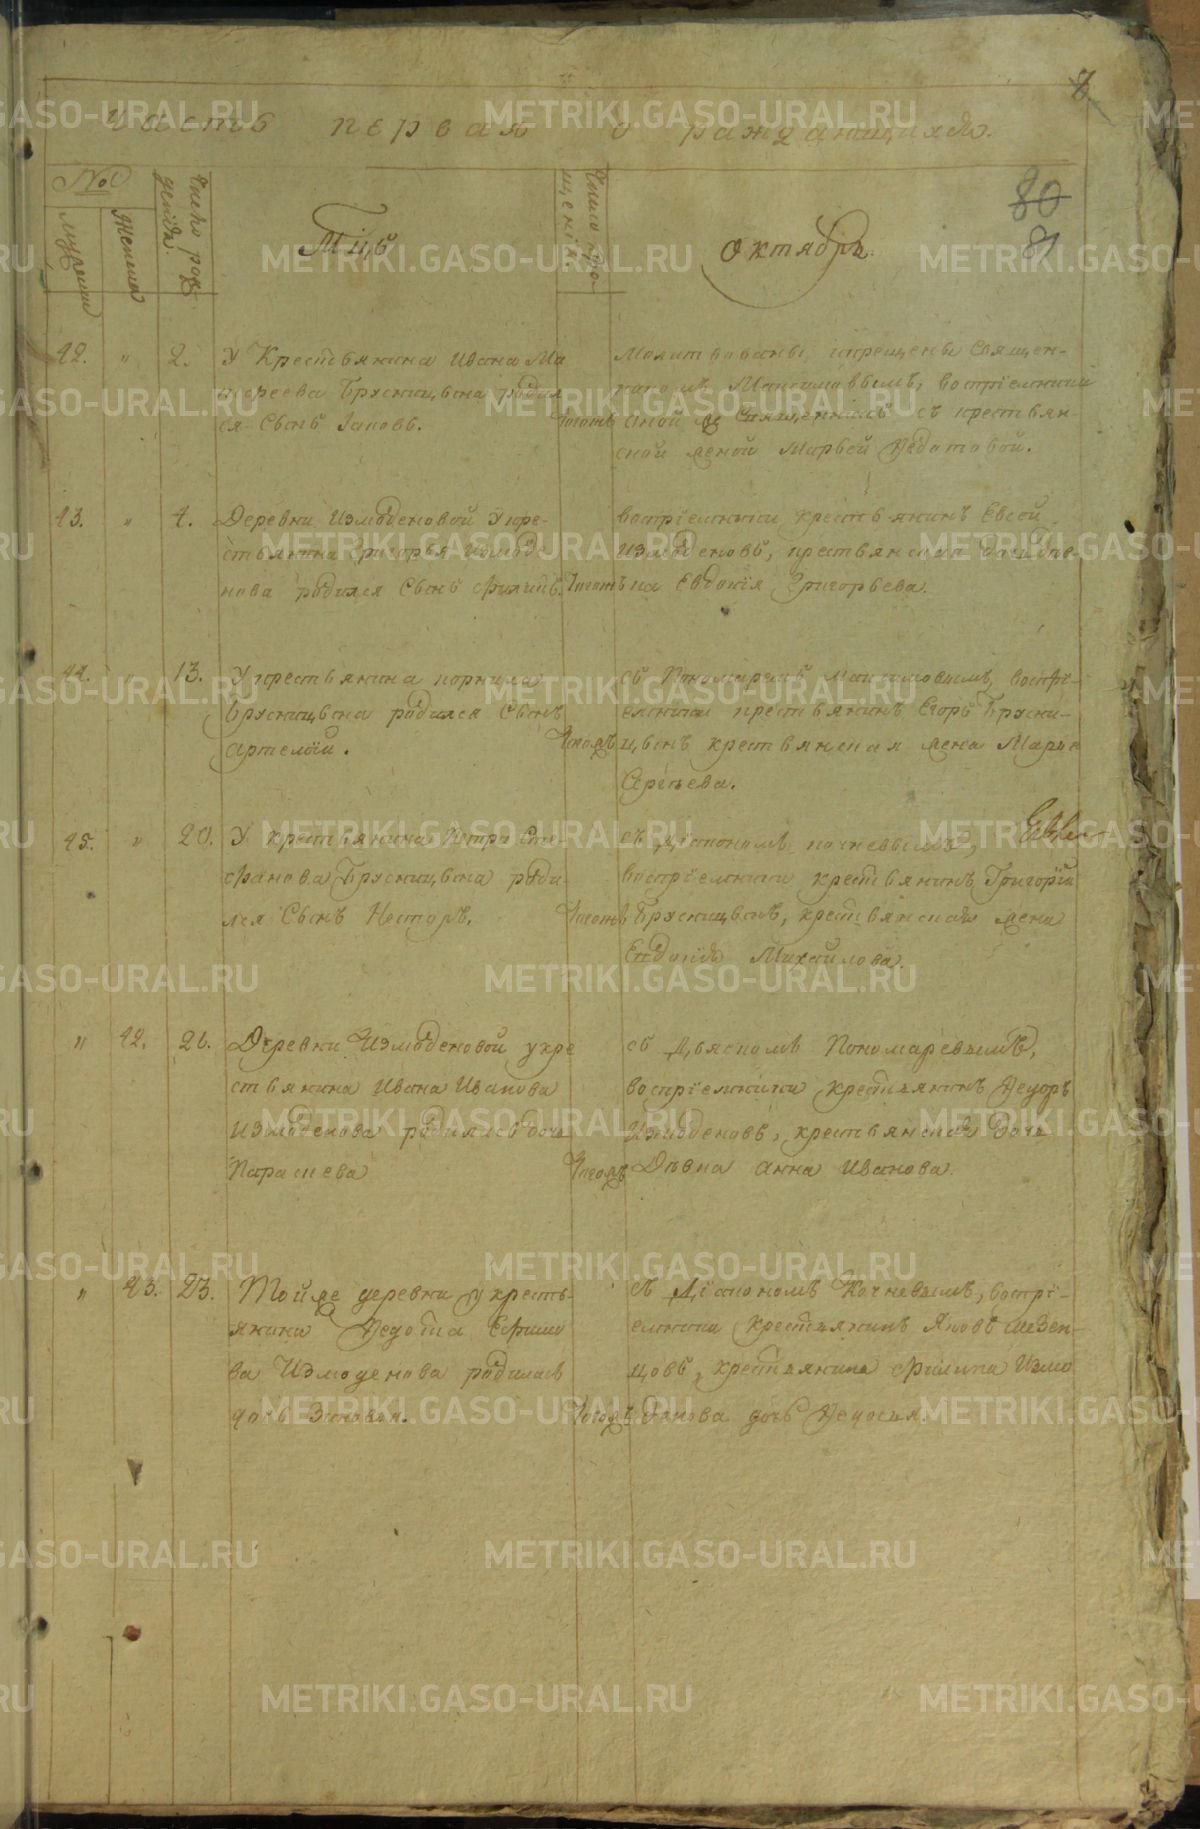 Часть первая о раждающихся.
80
8
№
Мужеска
Женска
Число рож
дения.
Мѣцъ
Число кре
щенія.
октябрь.
42. " 2. У Крестьянина Ивана Ма
Брусницына родил
ся Сынъ Іаковъ.
Молитвованы, и крещены Священ-
никомъ Максимовымъ, воспріемники
съ крестьян-
ской женой Марѳой Ѳедотовой.
43. " 4. Деревни Измоденовой у кре-
стьянина Григорья Измоде
нова родился Сынъ Филипъ.
воспріемники крестьянинъ Евсей
Измоденовъ, крестьянская дочь дѣв-
ка Евдокія Григорьева.
44. " 13. У крестьянина Корнила
Брусницына родился Сынъ
Артемий.
съ Пономаремъ Максимовымъ, воспрі-
емники крестьянинъ Егоръ Брусни-
цынъ крестьянская жена Марья
45. " 20. У крестьянина Петра Сте
фанова Брусницына роди-
лся Сынъ Несторъ.
съ Діакономъ Кочневымъ,
воспріемники крестьянинъ Григорій
Брусницынъ, крестьянская жена
Евдокія Михайлова.
" 42. 21. Деревни Измоденовой у кре
стьянина Ивана Иванова
Измоденова родилась дочь
Параскева
съ Дьячкомъ Пономаревымъ,
воспріемники крестьянинъ Ѳедоръ
Измоденовъ, крестьянская дочь
Дѣвка Анна Иванова.
" 43. 23. Той же деревни у кресть-
янина Ѳедота Ефимо
ва Измоденова родилась
дочь Зиновья.
съ Діакономъ Кочневымъ, воспрі-
емники крестьянинъ Яковъ Мезен-
цовъ, крестьянина Филипа Измо
денова дочь Ѳедосья.
METRIKI.GASO-URAL.RU